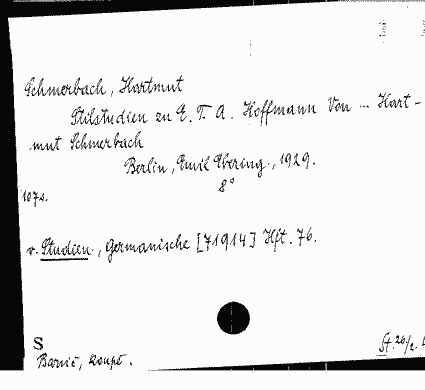 Schmerbach, Hartmut
Stilstudien zu E. T. A. Hoffmann Von ... Hart-
mut Schmerbach
Berlin, Emil Ebering, 1929.
8°
107 s.
v. Studien, Germanische [71914] Hft. 76.
S
St. 26/2.
Barnič, koupě.